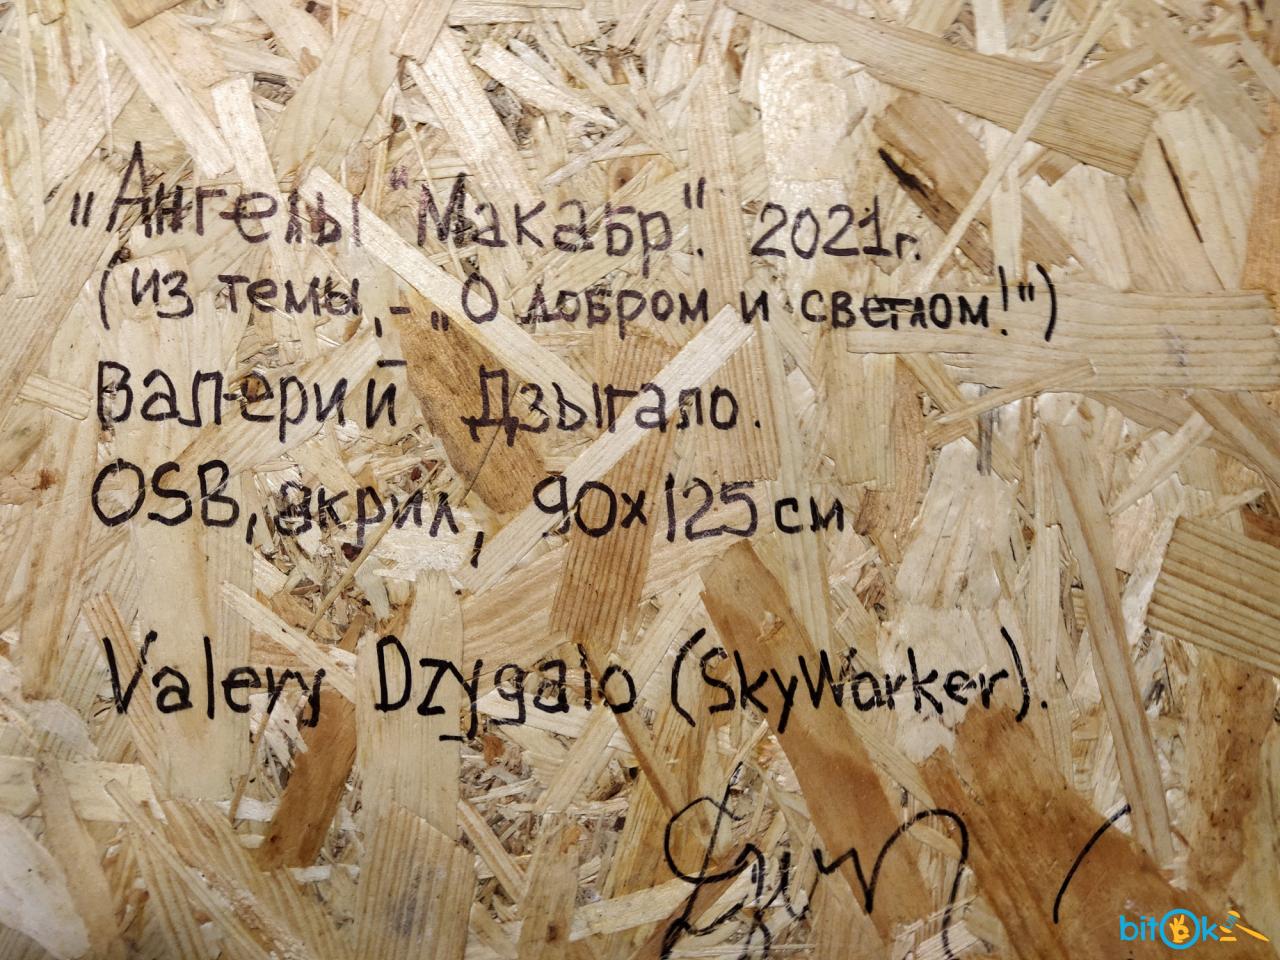 „Ангелы "Макабр". 2021г.
(из темы,-„О добром и светлом!")
Валерий Дзыгало.
OSB, акрил, 90х125см
Valery Dzygalo (SkyWorker).
bitOk